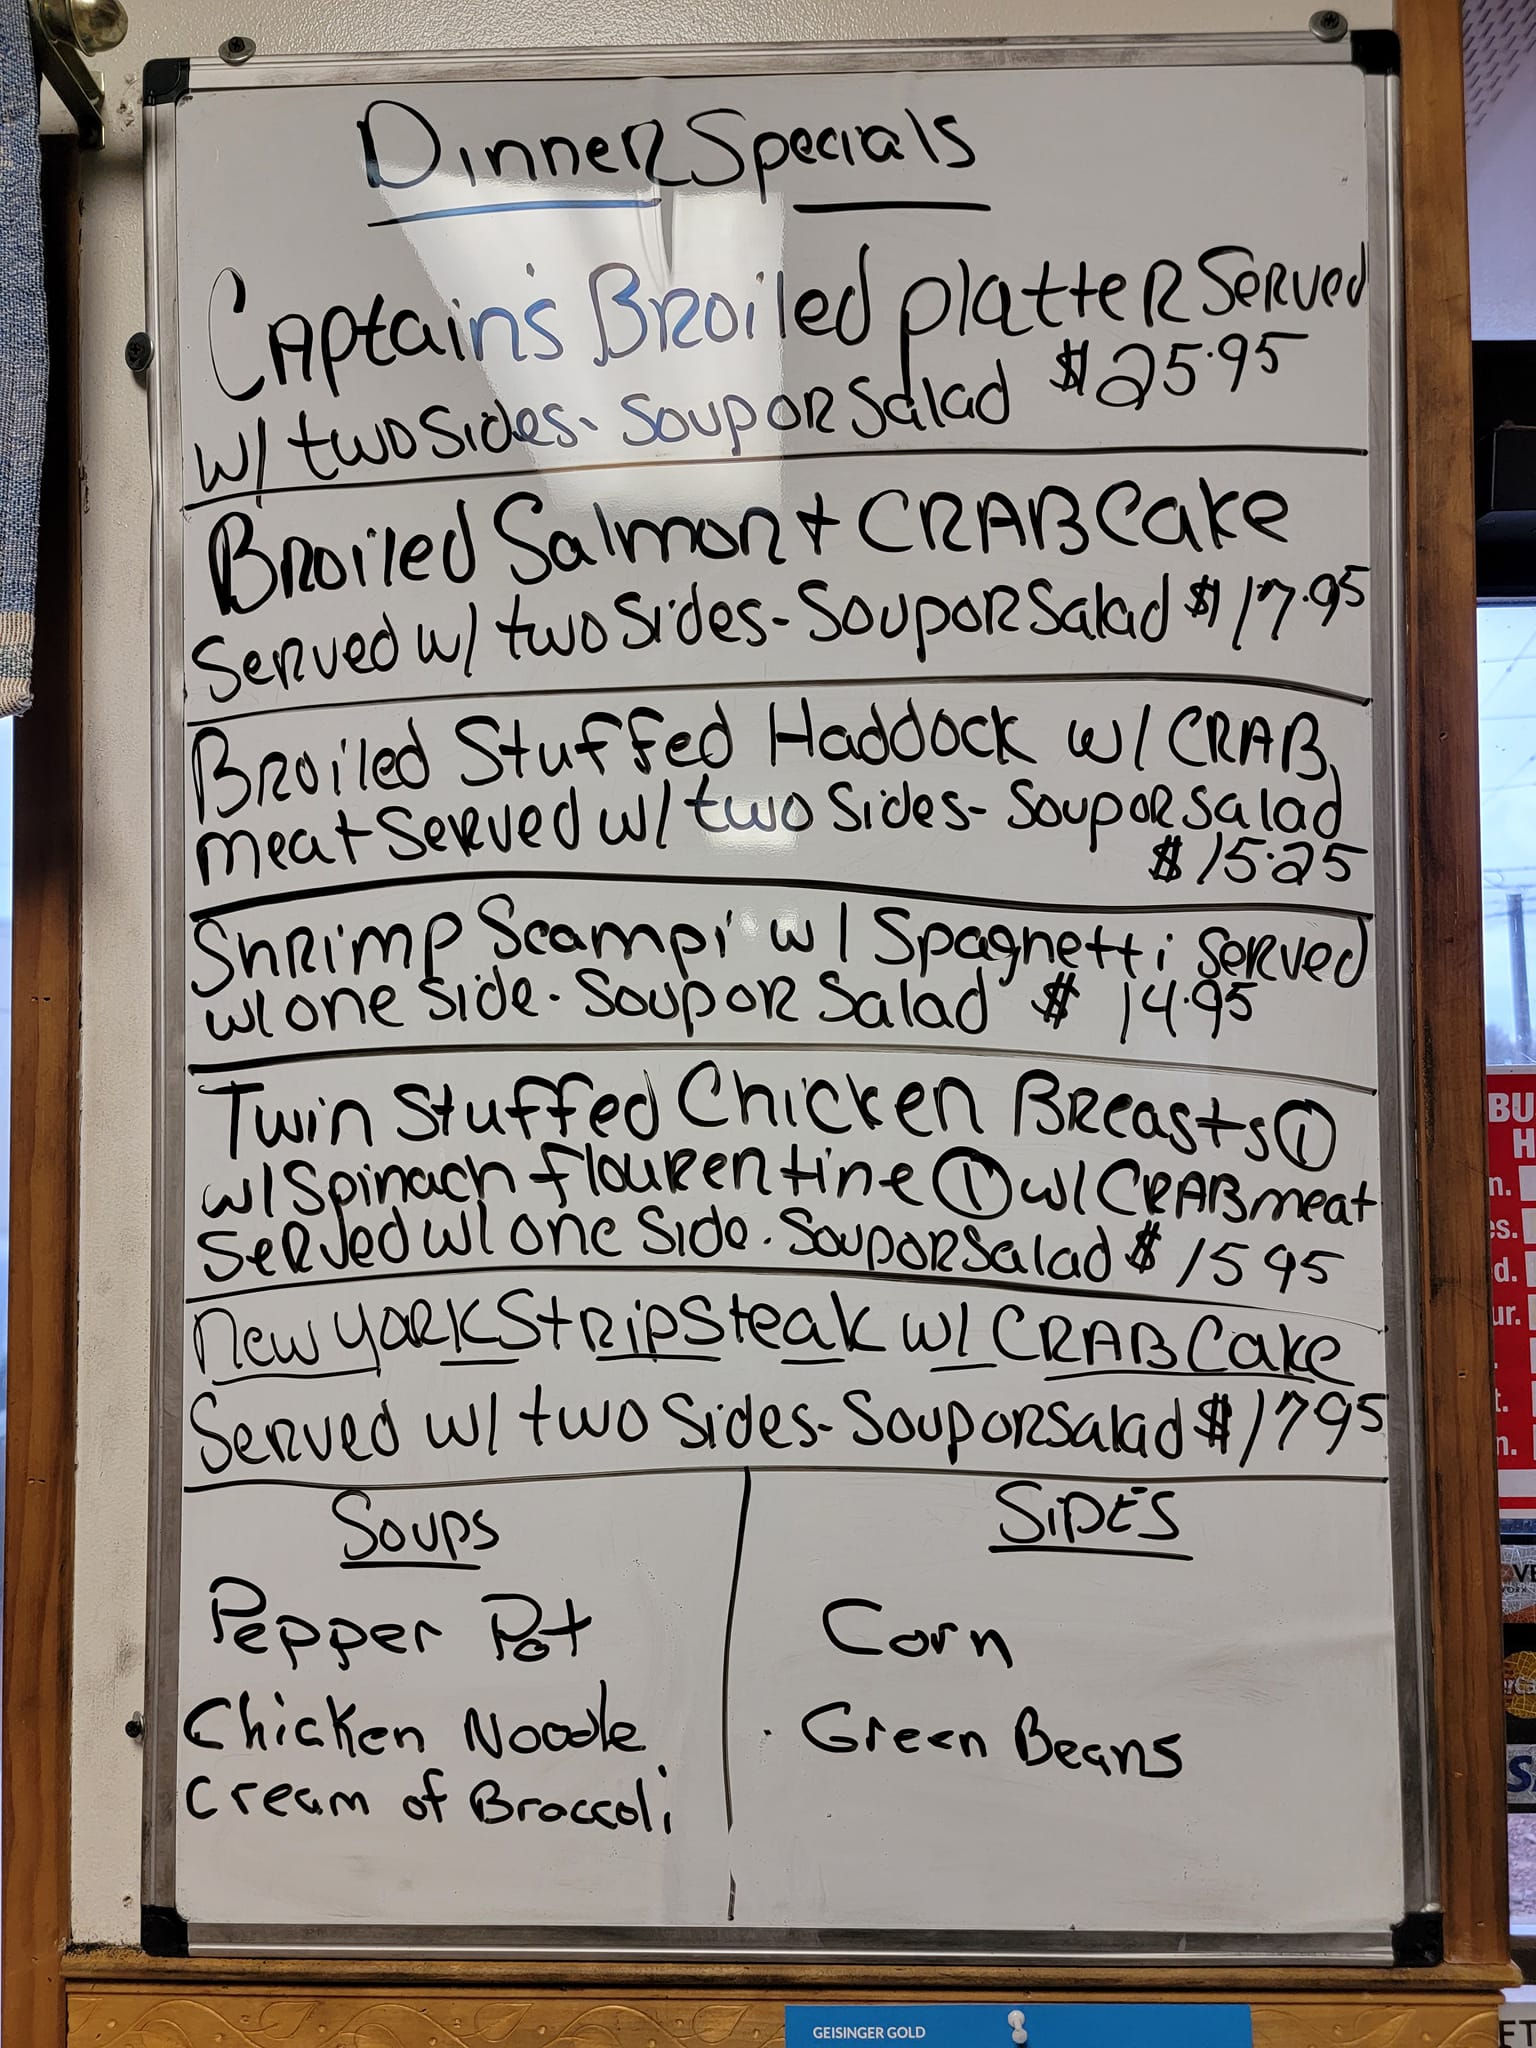 Dinner Specials
Captain's Broiled platter Served
w/ two sides- Soup or Salad $25.95
Broiled Salmon + CRAB Cake
Served w/ two sides- Soup or Salad $17.95
Broiled Stuffed Haddock w/ CRAB
meat Served w/ two sides- Soup or Salad
$15.25
Shrimp Scampi w/ Spaghetti Served
w/ one side- Soup or Salad $14.95
Twin Stuffed Chicken Breasts ①
w/ Spinach flourentine ① w/ CRAB meat
Served w/ one side. Soup or Salad $15 95
New York Strip Steak w/ CRAB Cake
Served w/ two sides- Soup or Salad $17 95
Soups
Pepper Pot
Chicken Noodle
Cream of Broccoli
SiDES
Corn
· Green Beans
GEISINGER GOLD
BU
H
n.
es.
d.
ur.
t.
n.
VE
ET